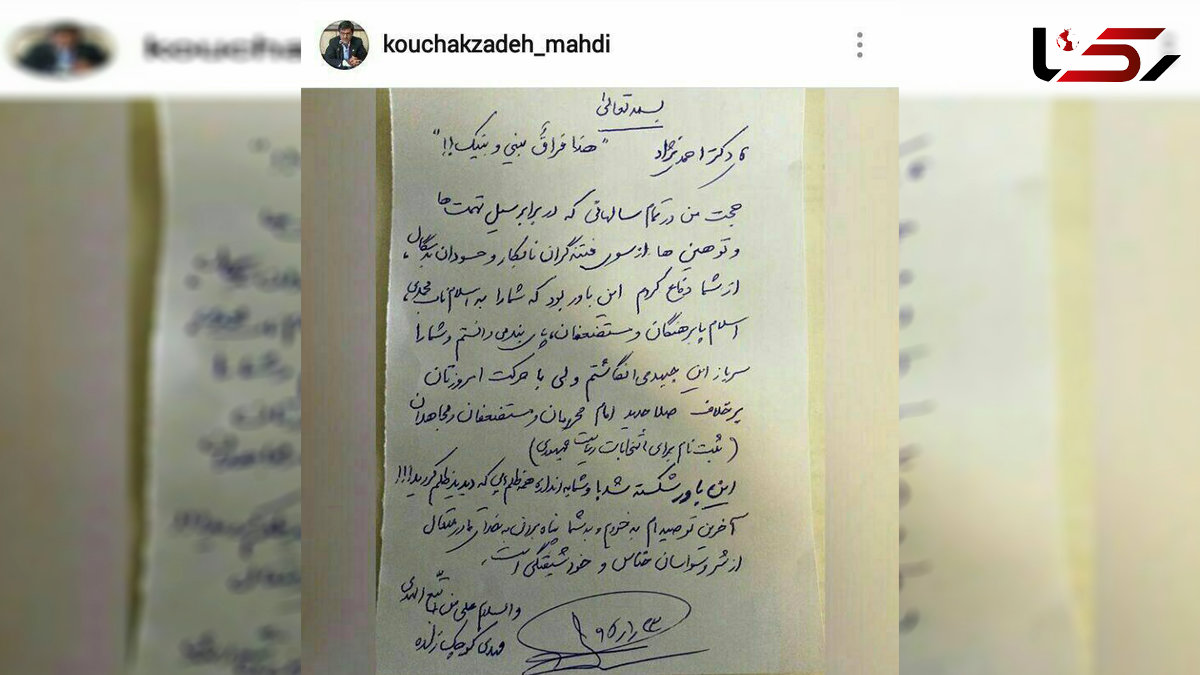 kouchakzadeh_mahdi
رکنا
بسمه تعالی
آقای دکتر احمدی نژاد "هذا فراقُ بینی و بینک!!"
حجت من در تمام سالهائی که در برابر سیل تهمت ها
و توهین ها از سوی فتنه گران نابکار و حسودان بدسگال،
از شما دفاع کردم این باور بود که شما را به اسلام ناب محمدی،
اسلام پابرهنگان و مستضعفان، پای بند می دانستم و شما را
سرباز این جبهه می انگاشتم ولی با حرکت امروزتان
برخلاف صلاحدید امام محرومان و مستضعفان و مجاهدان
(ثبت نام برای انتخابات ریاست جمهوری)
این باور شکسته شد و شما به اندازه همه ظلم هایی که دیدید ظلم کردید!!!
آخرین توصیه ام به خودم و به شما پناه بردن به خدای قادر متعال
از شر وسواسان خناس و خودشیفتگی است.
والسلام علی من اتّبع الهدی
مهدی کوچک زاده
koucha